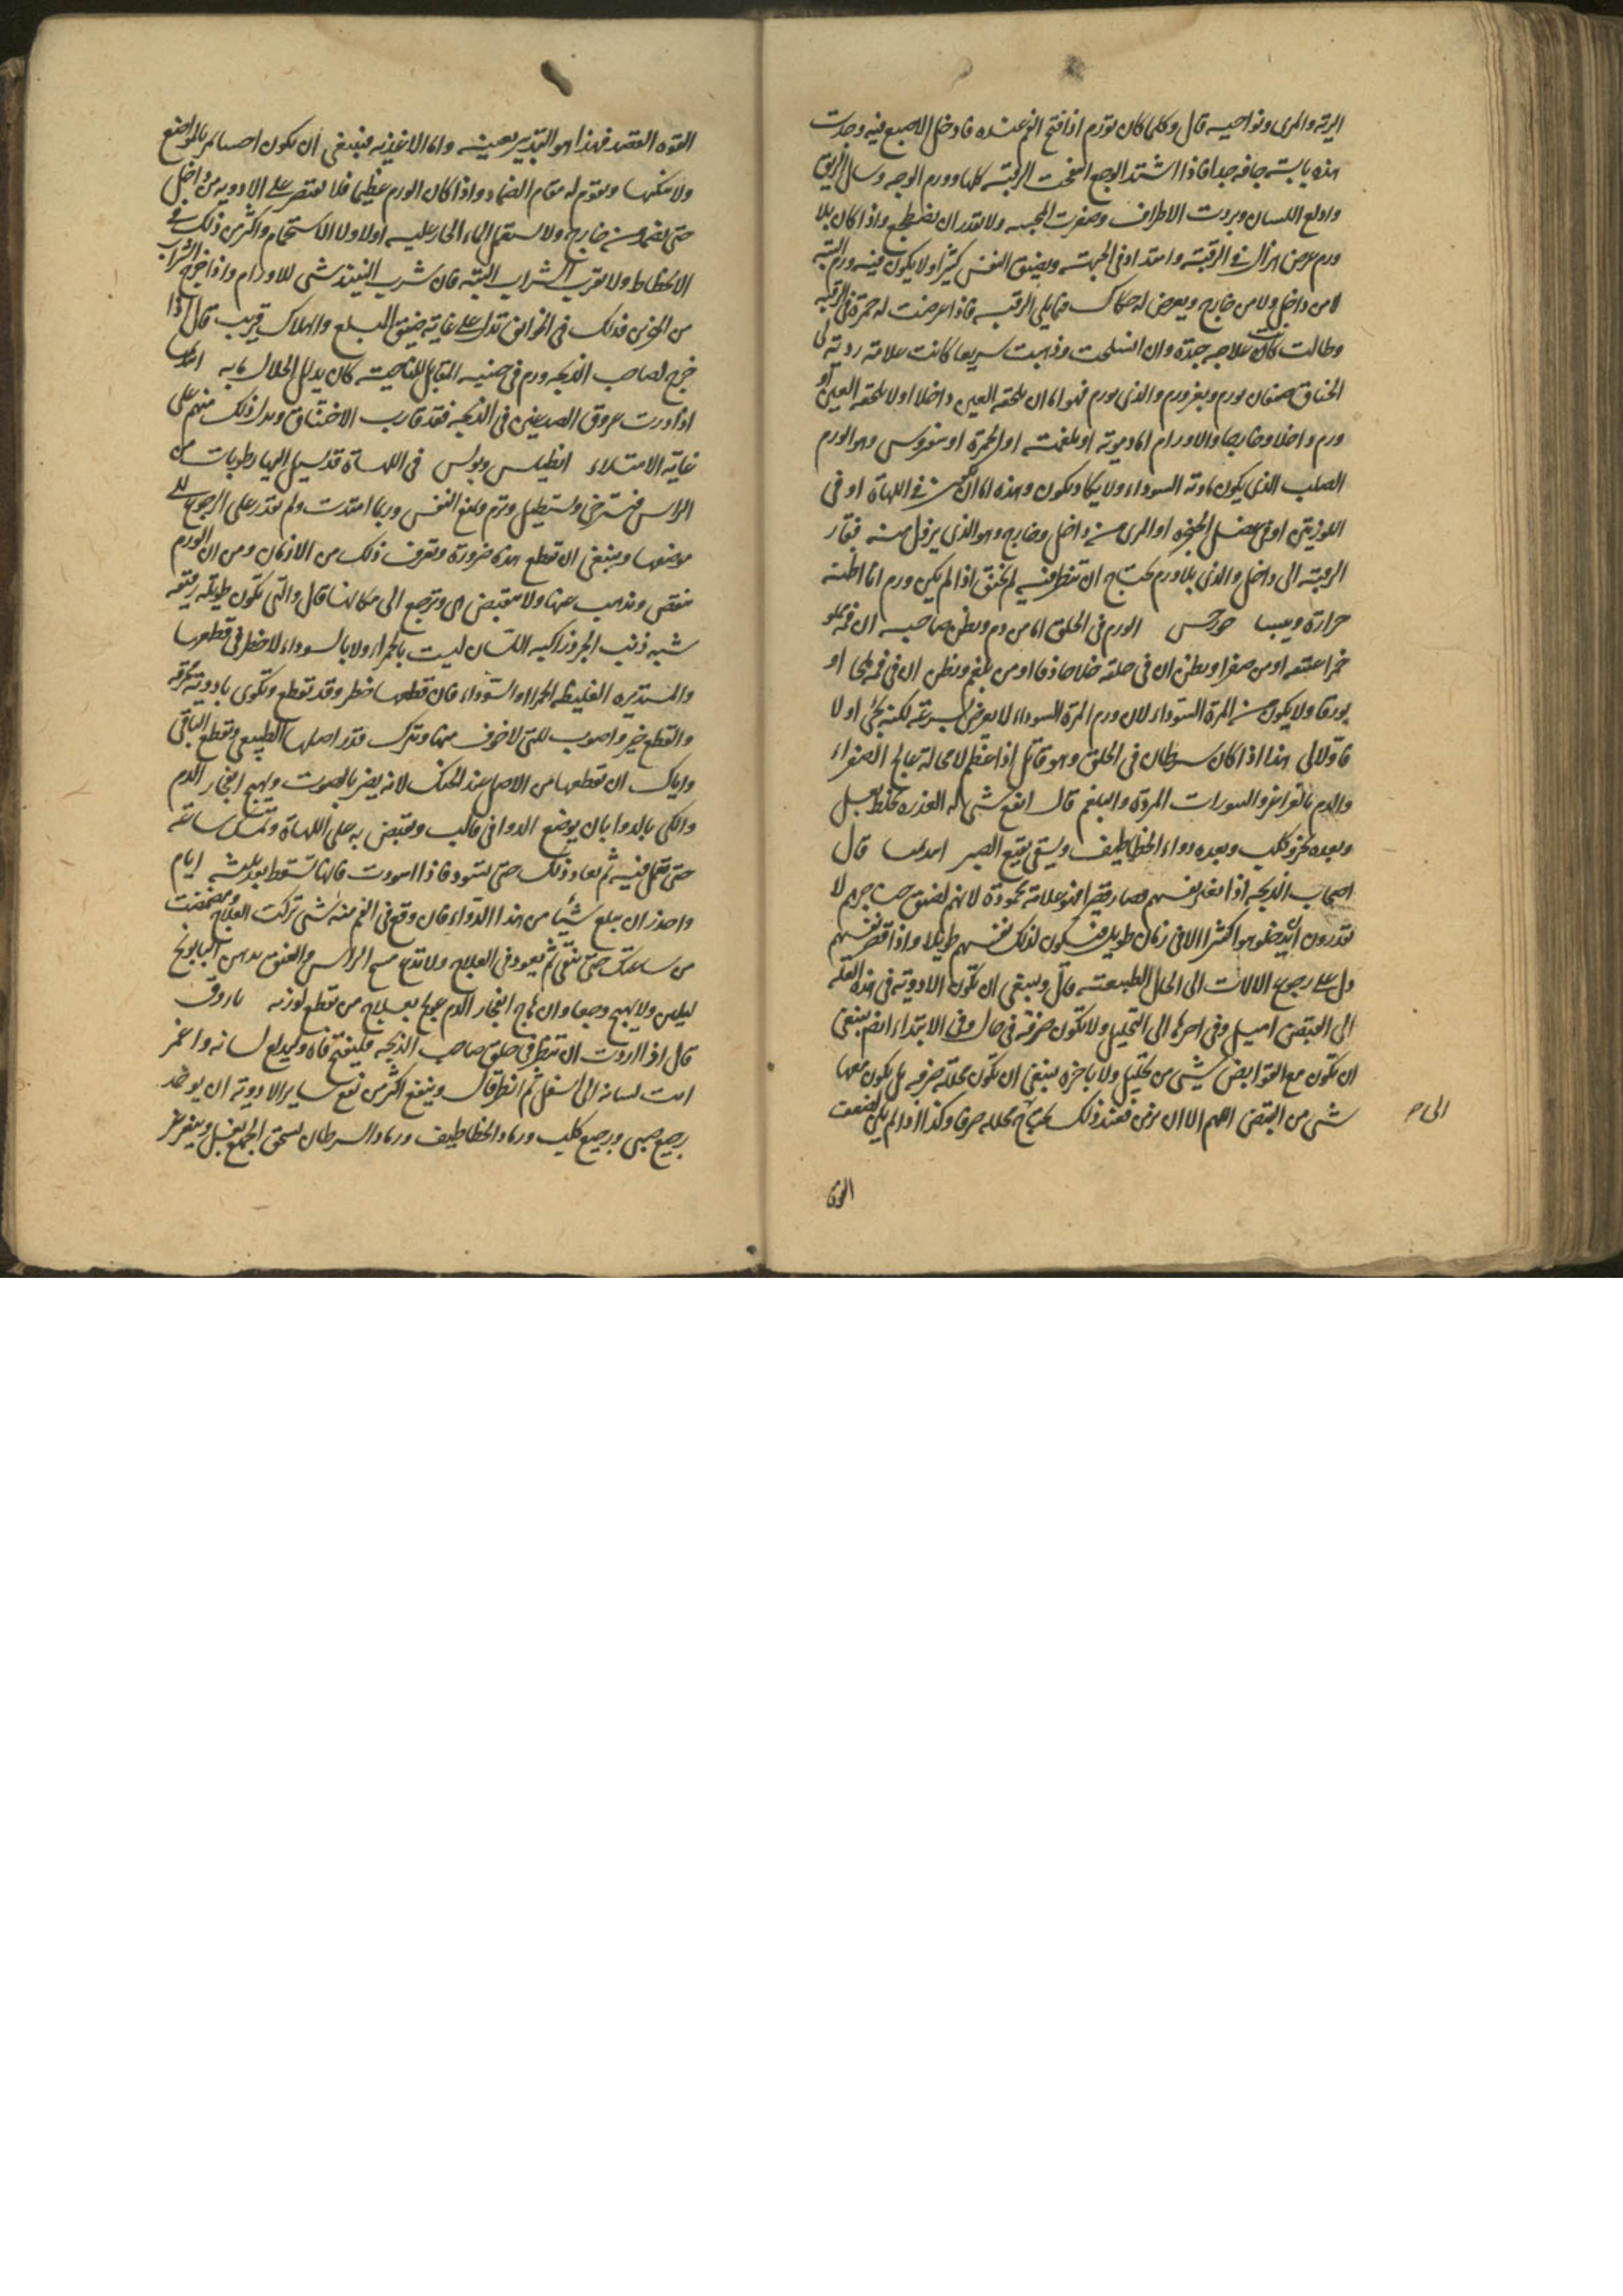 الرية والمرى ونواحيه قال وكلما كان تورم اذا فتح الفم عنده فادخل الاصبع فيه وجدت
هذه يابسة جافه جدا فاذا اشتد الوجع انتفخت الرقبة كلها وورم الوجه وسال الريق
وادلع اللسان وبردت الاطراف وصغرت المجسه ولا يقدر ان يضطجع واذا كان بلا
ورم عرض هزال في الرقبة وامتداد في الجبهة ويضيق النفس كثيرا ولا يكون فيه ورم البتة
لا من داخل ولا من خارج ويعرض له حكاك فيما يلي الرقبه فاذا عرضت له حمرة في الرقبه
وطالت كانت علاجه جيدة وان انسلخت وذهبت سريعا كانت علامة ردية لى
الخناق صنفان بورم وبغير ورم والذي بورم فهو اما ان يلحقه العين داخلا او لا يلحقه العين او
ورم داخلا وخارجا والاورام اما دموية او بلغمية او الحمرة او سقيروس وهو الورم
الصلب الذي يكون مادته السوداء ولا يكاد يكون وهذه اما ان تكون في اللهاة او في
اللوزتين او في عضل الحنجره او المرى من داخل وخارج وهو الذي يزول منه فقار
الرقبة الى داخل والذي بلا ورم يحتاج ان تنظر فيه لم يخنق اذا لم يكن ورم انا اظنه
حرارة ويبسا جورجس الورم في الحلق اما من دم ويظن صاحبه ان فمه مملو
خمرا عتيقه او من صفرا ويظن ان في حلقه خلا حاذقا او من بلغم ويظن ان في فمه ملحا او
بورقا ولا يكون من المرة السوداء لان ورم المرة السوداء لا يعرض بسرعة لكنه يجئ اولا
فاولا لى هذا اذا كان سرطان في الحلق وهو قاتل اذا عظم لا محالة تعالج الصفراء
والدم بالغراغر والسورات المبردة والبلغم قال انفع شئ له العذرة تخلط بعسل
وبعده بخرو كلب وبعده دواء الخطاطيف ويسقى نقيع الصبر ابديميا قال
اصحاب الذبحه اذا تغير نفسهم وصار قصيرا فهو علامة محمودة لانهم لضيق حناجرهم لا
يقدرون ان يدخلوا هوا كثيرا الا في زمان طويل فيكون لذلك نفسهم طويلا واذا قصر نفسهم
دل على رجوع الالات الى الحال الطبيعية قال وينبغي ان تكون الادوية في هذه العلة
الى القبض اميل وفي اخرها الى التحليل ولا تكون صرفه في حال وفي الابتداء ايضا ينبغي
ان تكون مع القوابض شئ من تحليل ولا باخره ينبغي ان تكون محللة صرفه بل يكون معها
شئ من القبض اللهم الا ان يزمن فعند ذلك يحتاج محلله صرفا وكذا اذا لم يكن لضعف
الى ح
القوة
القوه القصد فهذا هو التدبير بعينه واما الاغذيه فينبغي ان يكون احسا تمر بالمواضع
ولا تنكيها ويقوم له مقام الضماد واذا كان الورم عظيما فلا تقتصر على الادويه من داخل
حتى يضمد من خارج ولا يستعمل الماء الحار عليه اولا ولا الاستحمام واكثر من ذلك في
الانحطاط ولا تقرب الشراب البتة فان شرب النبيذ شئ للاورام واذا خرج الشراب
من المنخرين فذلك في الخوانيق تدل على غاية ضيق المبلع والهلاك قريب قال اذا
خرج لصاحب الذبحه ورم في جنبه المقابل للناحية كان دليل الخلال مابه
اذا درت عروق الصدغين في الذبحه فقد قارب الاختناق ويدل ذلك منهم على
غاية الامتلاء انطيلس وبولس في اللهاة قد يسيل اليها رطوبات من
الراس فتسترخي وتستطيل وترم وتمنع النفس وربما امتدت ولم تقدر على الرجوع الى
موضعها وينبغي ان تقطع هذه ضرورة وتعرف ذلك من الازمان ومن ان الورم
ينقص ويذهب عنها ولا تنقبض هى وترجع الى مكانها قال والتي تكون طويلة رقيقة
شبه ذنب الجرذ راكبه اللسان ليست بالحمراء ولا بالسوداء لا خطر في قطعها
والمستديره الغليظه الحمراء والسوداء فان قطعها خطر وقد تقطع وتكوى بادوية محرقه
والقطع خير واصوب للتي لا خوف منها وتترك قدر اصلها الطبيعي ويقطع الباقي
واياك ان تقطعها من الاصل عند الحنك لانه يضر بالصوت ويهيج انفجار الدم
والكي بالدوا بان يوضع الدوا في قالب ويقبض به على اللهاة وتمسك ساعة
حتى تعمل فيه ثم يعاود ذلك حتى تسود فاذا اسودت فانها تسقط بعد ثلثه ايام
واحذر ان يبلع شيئا من هذا الدواء فان وقع في الفم منه شئ تركت العلاج ومضمضت
من ساعتك حتى تنقى ثم تعود في العلاج ولا تدع مسح الراس والعنق بدهن البابونج
ليلين ولا يهيج وجعا وان هاج انفجار الدم عولج بعلاج من قطع لوزته
قال اذا اردت ان تنظر في حلق صاحب الذبحه فليفتح فاه وليدلع لسانه واغمز
انت لسانه الى اسفل ثم انظر قال وينفع اكثر من نفع ساير الادوية ان يوخذ
رجيع صبي ورجيع كلب ورماد الخطاطيف ورماد السرطان يسحق الجميع بعسل ويتغرغر